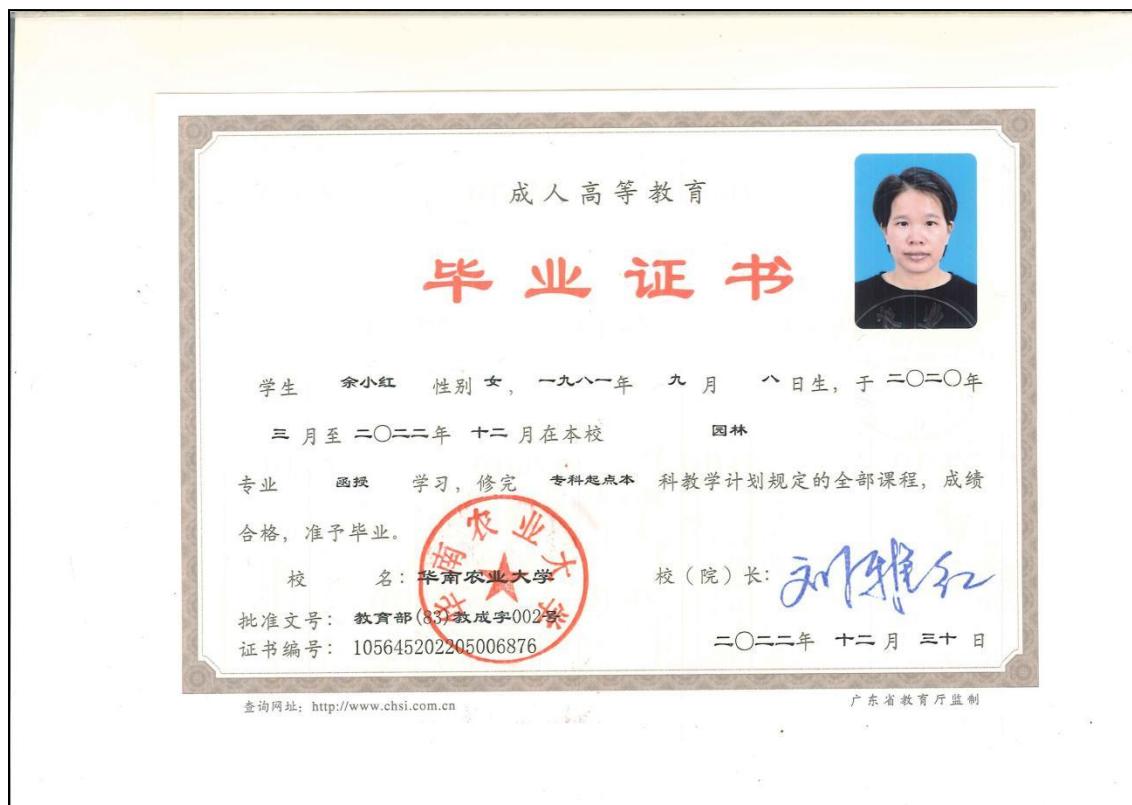 成人高等教育
毕业证书
学生 余小红 性别 女，一九八一年 九 月 八 日生，于 二〇二〇年
三 月至 二〇二二年 十二 月在本校 园林
专业 函授 学习，修完 专科起点本 科教学计划规定的全部课程，成绩
合格，准予毕业。
校 名：华南农业大学
校（院）长：刘雅红
批准文号：教育部(83)教成字002号
证书编号：105645202205006876
二〇二二年 十二 月 三十 日
华南农业大学
查询网址：http://www.chsi.com.cn
广东省教育厅监制